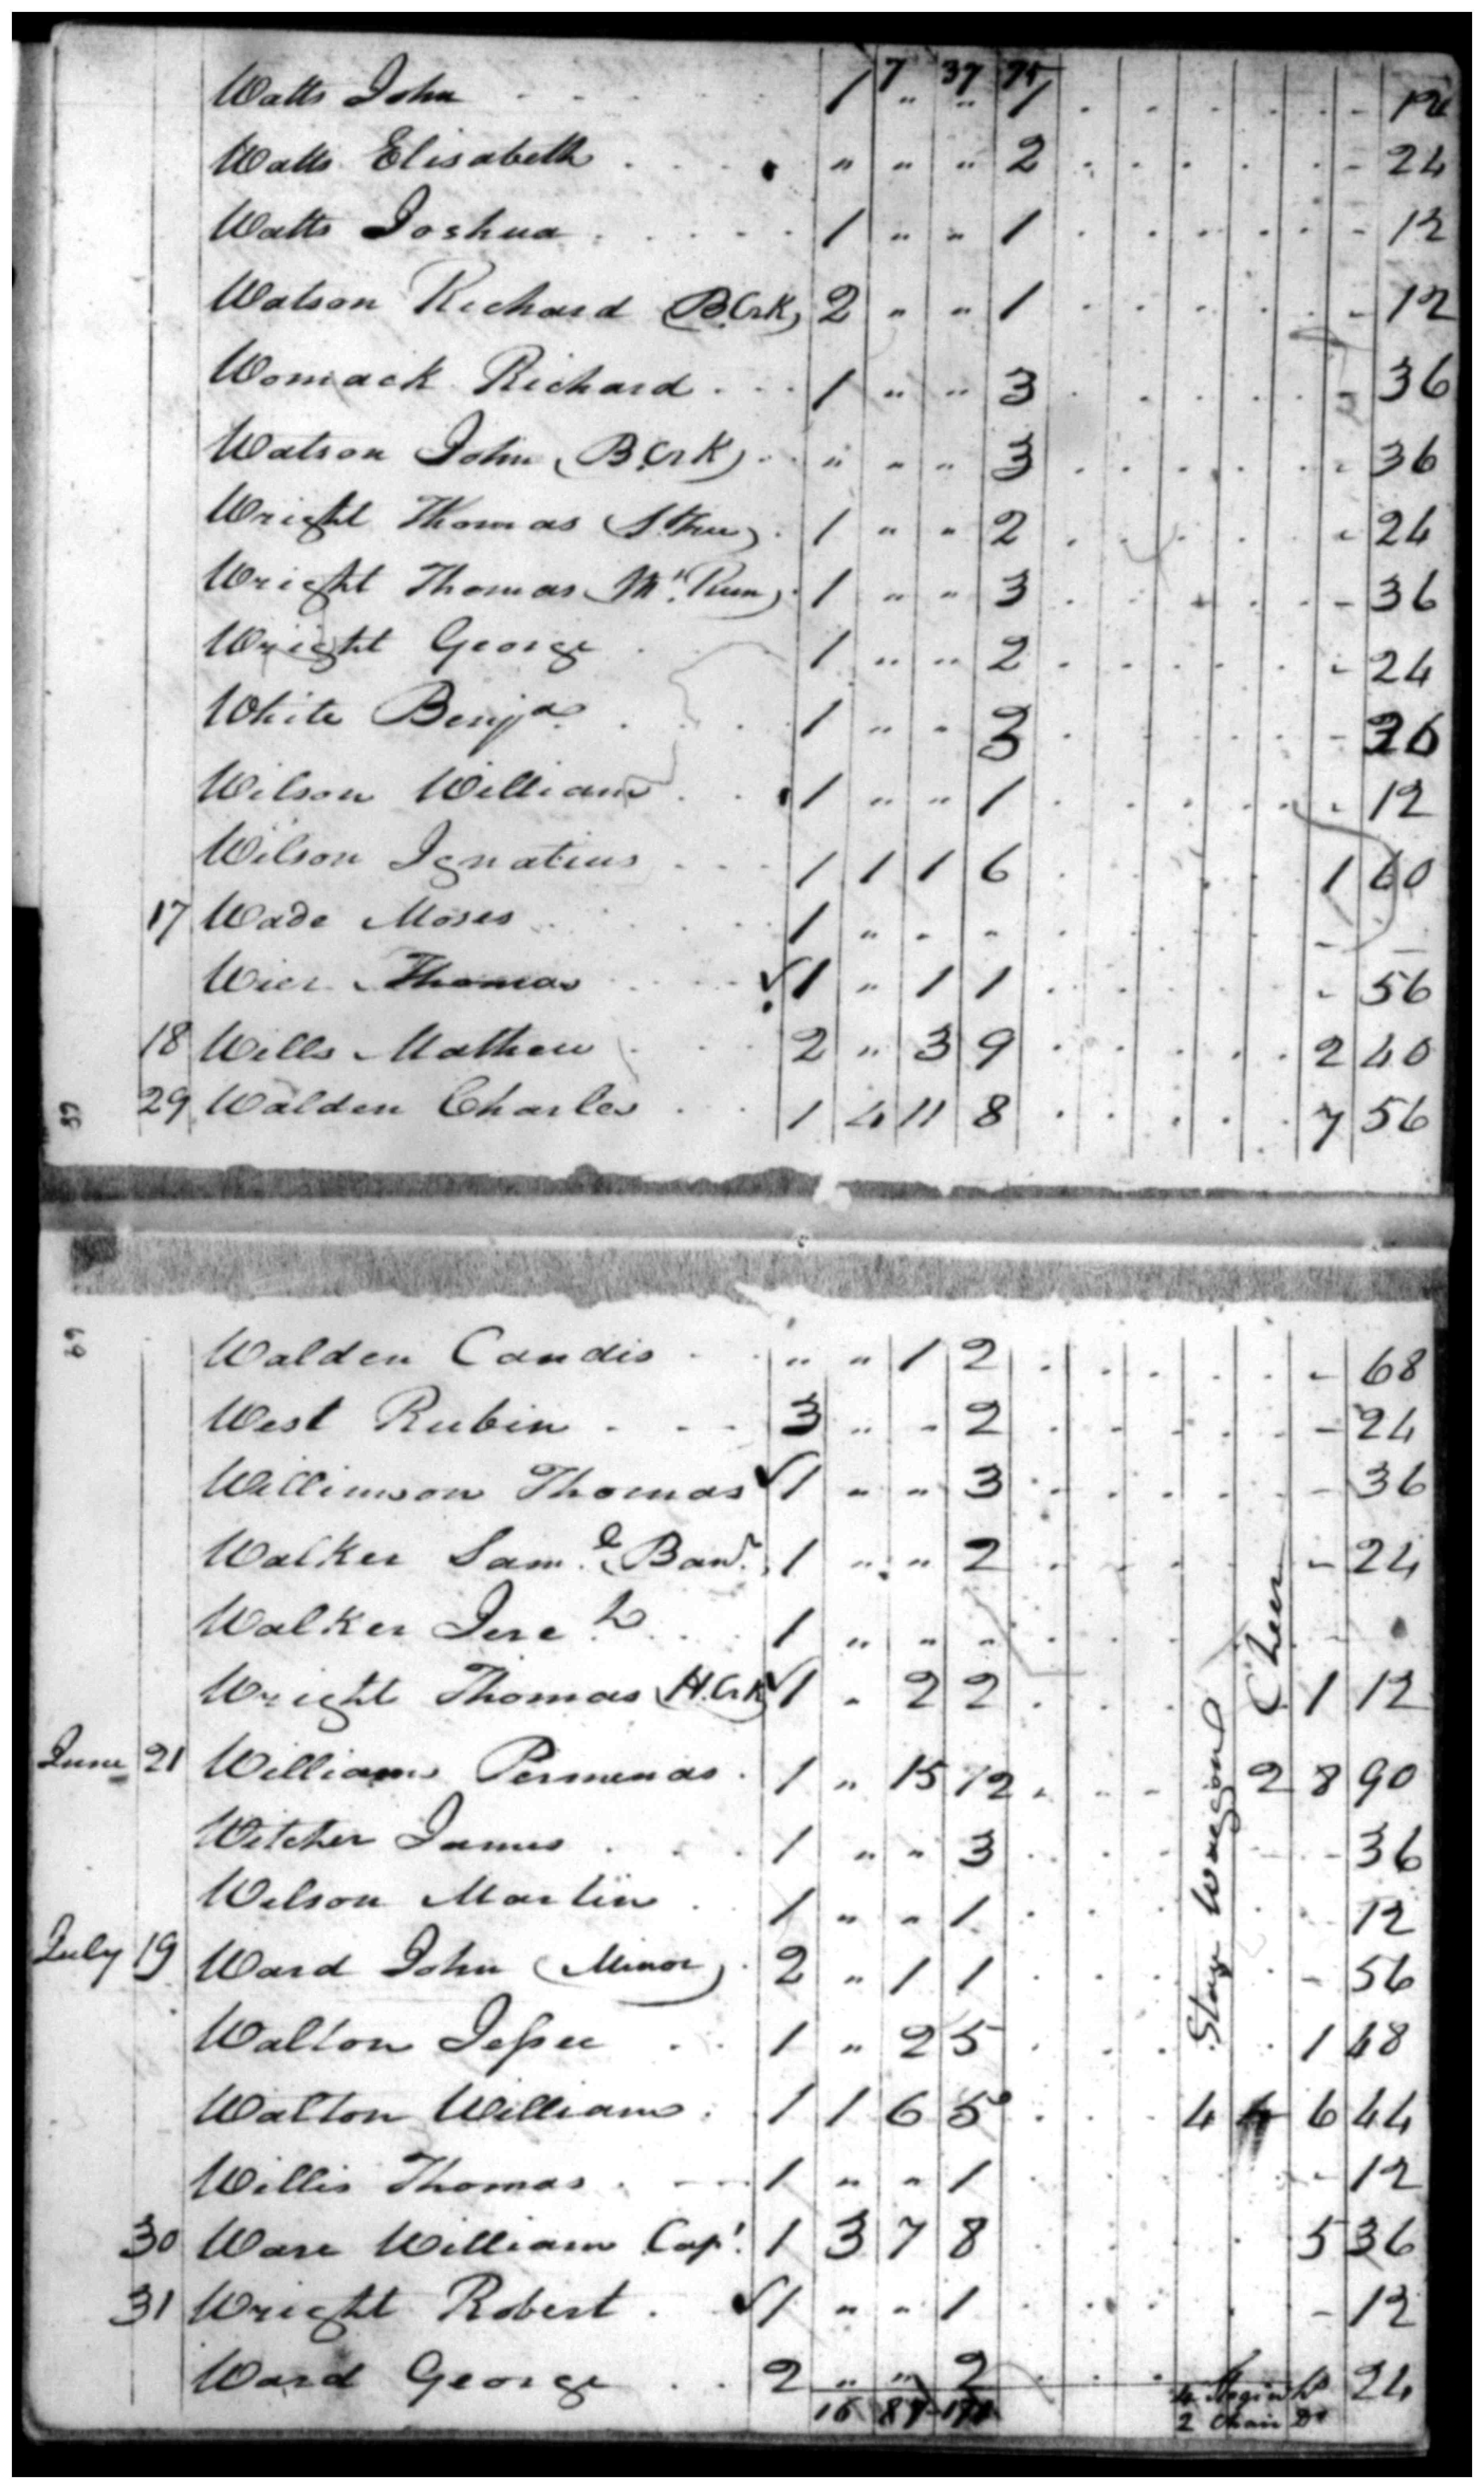 7 37 75
Watts John 1 " " 1 - 12
Watts Elisabeth " " " 2 - 24
Watts Joshua 1 " " 1 - 12
Watson Richard (B.Crk) 2 " " 1 - 12
Womack Richard 1 " " 3 - 36
Watson John (B.Crk) " " " 3 - 36
Wright Thomas 1 " " 2 - 24
Wright Thomas 1 " " 3 - 36
Wright George 1 " " 2 - 24
White Benja 1 " " 3 - 36
Wilson William 1 " " 1 - 12
Wilson Ignatius 1 1 1 6 1 60
17 Wade Moses 1 " " " - -
Wier Thomas ✓ 1 " 1 1 - 56
18 Wills Mathew 2 " 3 9 2 40
29 Walden Charles 1 4 11 8 7 56
Walden Candis " " 1 2 - 68
West Rubin 3 " " 2 - 24
Willimson Thomas ✓ 1 " " 3 - 36
Walker Saml (Banr) 1 " " 2 - 24
Walker Jereh 1 " " "
Wright Thomas (H.Crk) ✓ 1 " 2 2 1 12
June 21 Williams Permenas 1 " 15 12 Chair 2 8 90
Witcher James 1 " " 3 - 36
Wilson Martin 1 " " 1 - 12
July 19 Ward John (Minor) 2 " 1 1 - 56
Walton Jesse 1 " 2 5 1 48
Walton William 1 1 6 5 Stage Waggond 4 6 44
Willis Thomas 1 " " 1 - 12
30 Ware William Capt 1 3 7 8 5 36
31 Wright Robert ✓ 1 " " 1 - 12
Ward George 2 " " 2 24
2 Chair Do